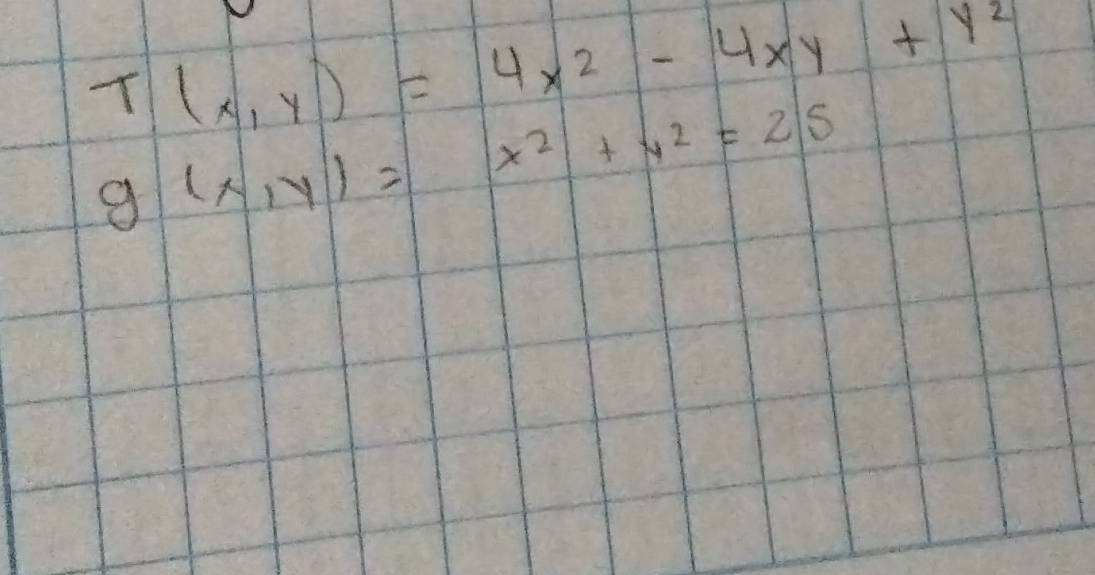 T(x,y) = 4x² - 4xy + y²
g(x,y) = x² + y² = 25